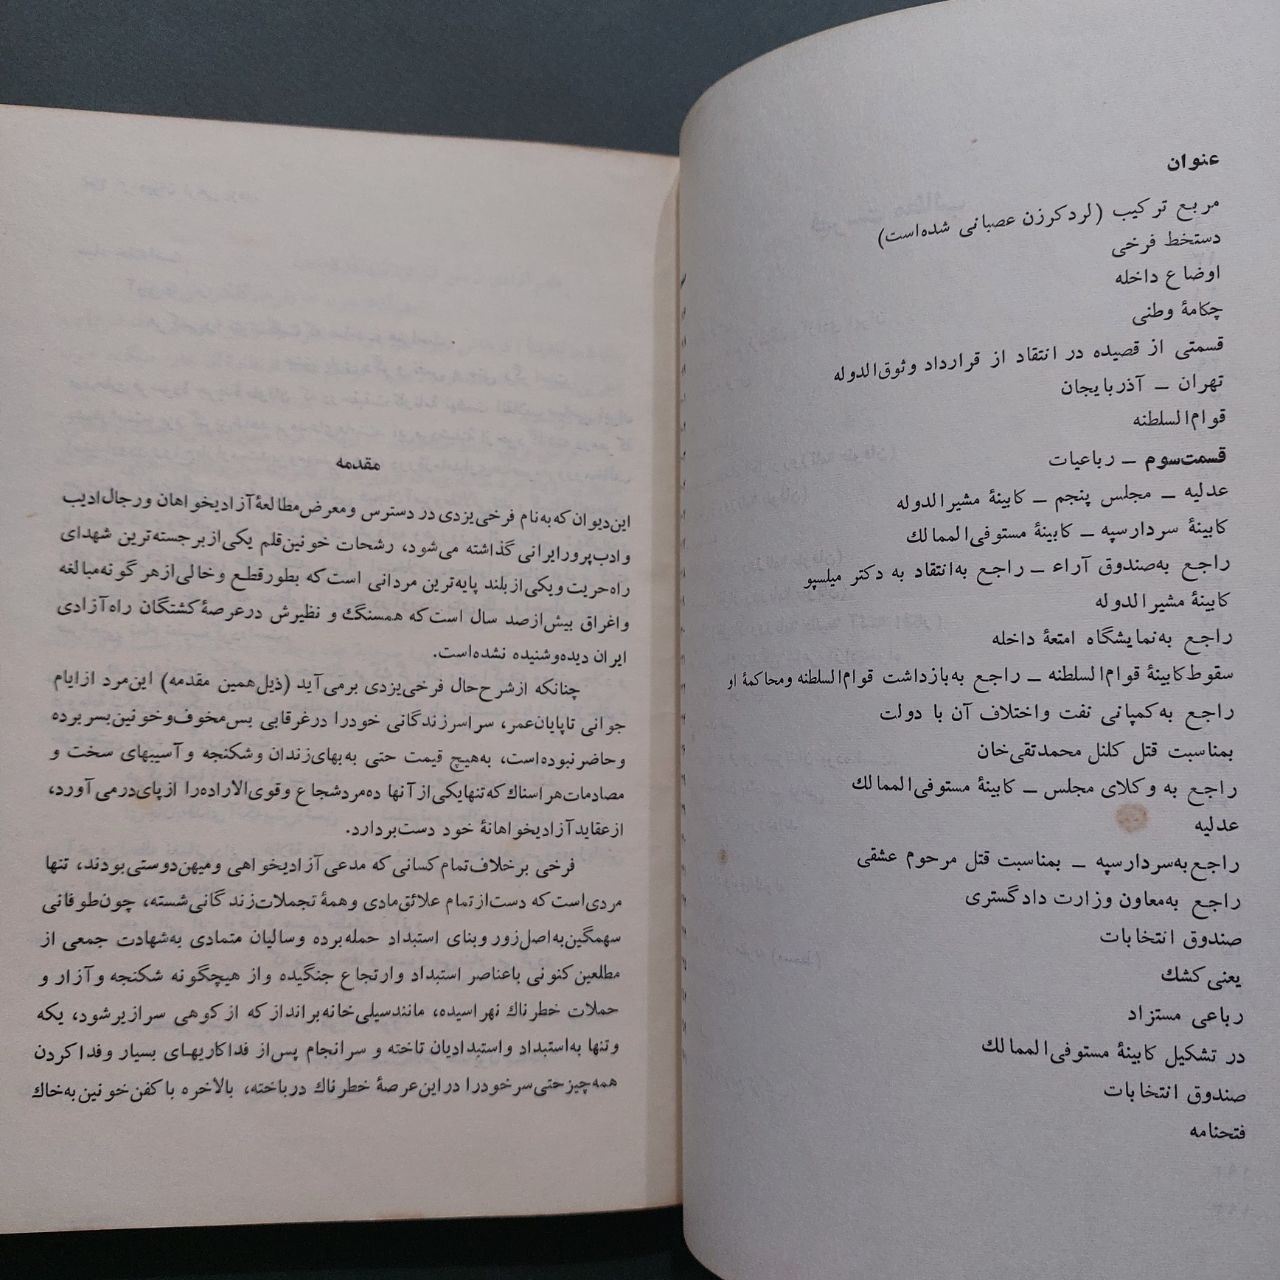 عنوان
مربع ترکیب (لردکرزن عصبانی شده‌است)
دستخط فرخی
اوضاع داخله
چکامهٔ وطنی
قسمتی از قصیده در انتقاد از قرارداد وثوق‌الدوله
تهران ــ آذربایجان
قوام‌السلطنه
قسمت‌سوم ــ رباعیات
عدلیه ــ مجلس پنجم ــ کابینهٔ مشیرالدوله
کابینهٔ سردارسپه ــ کابینهٔ مستوفی‌الممالك
راجع به‌صندوق آراء ــ راجع به‌انتقاد به دکتر میلسپو
کابینهٔ مشیرالدوله
راجع به‌نمایشگاه امتعهٔ داخله
سقوط‌کابینهٔ قوام‌السلطنه ــ راجع به‌بازداشت قوام‌السلطنه ومحاکمهٔ او
راجع به‌کمپانی نفت واختلاف آن با دولت
بمناسبت قتل کلنل محمدتقی‌خان
راجع به وکلای مجلس ــ کابینهٔ مستوفی‌الممالك
عدلیه
راجع‌به‌سردارسپه ــ بمناسبت قتل مرحوم عشقی
راجع به‌معاون وزارت دادگستری
صندوق انتخابات
یعنی‌کشك
رباعی مستزاد
در تشکیل کابینهٔ مستوفی‌الممالك
صندوق انتخابات
فتحنامه
مقدمه
این‌دیوان که‌به‌نام فرخی‌یزدی در دسترس ومعرض‌مطالعهٔ آزادیخواهان ورجال‌ادیب
وادب‌پرورایرانی گذاشته می‌شود، رشحات خونین‌قلم یکی‌ازبرجسته‌ترین شهدای
راه‌حریت ویکی‌ازبلند پایه‌ترین مردانی است‌که بطورقطع وخالی‌ازهرگونه‌مبالغه
واغراق بیش‌ازصد سال است‌که همسنگ و نظیرش درعرصهٔ کشتگان راه‌آزادی
ایران دیده‌وشنیده نشده‌است.
چنانکه ازشرح‌حال فرخی‌یزدی برمی‌آید (ذیل‌همین مقدمه) این‌مرد ازایام
جوانی تاپایان‌عمر، سراسرزندگانی خودرا درغرقابی بس‌مخوف‌وخونین‌بسربرده
وحاضرنبوده‌است، به‌هیچ قیمت حتی به‌بهای‌زندان وشکنجه وآسیبهای سخت و
مصادمات‌هراسناك که‌تنهایکی‌ازآنها ده‌مردشجاع وقوی‌الاراده‌را ازپای‌درمی‌آورد،
ازعقایدآزادیخواهانهٔ خود دست‌بردارد.
فرخی برخلاف‌تمام کسانی که مدعی آزادیخواهی ومیهن‌دوستی‌بودند، تنها
مردی‌است‌که دست‌ازتمام علائق‌مادی وهمهٔ تجملات‌زندگانی‌شسته، چون‌طوفانی
سهمگین‌به‌اصل‌زور وبنای استبداد حمله‌برده وسالیان متمادی به‌شهادت جمعی از
مطلعین‌کنونی باعناصر استبداد وارتجاع جنگیده وازهیچگونه شکنجه وآزار و
حملات خطرناك نهراسیده، مانندسیلی‌خانه‌براندازکه ازکوهی سرازیرشود، یکه
وتنها به‌استبداد واستبدادیان تاخته و سرانجام پس‌از فداکاریهای بسیار وفداکردن
همه‌چیزحتی‌سرخودرا دراین‌عرصهٔ خطرناك درباخته، بالاخره باکفن‌خونین‌به‌خاك